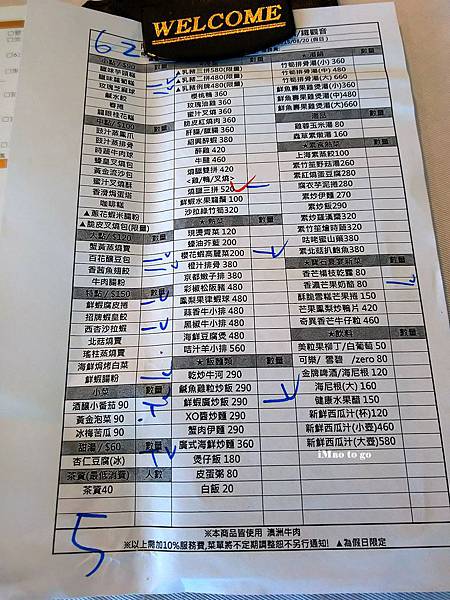 WELCOME
62
鐵觀音
小點 / $90
臘味芋頭糕
臘味蘿蔔糕
玫瑰芝麻球
鹹水餃
春捲
龍眼桂花糕
小點 / $100
豉汁蒸鳳爪
豉汁蒸排骨
時蔬牛肉球
蠔皇叉燒包
黃金流沙包
蜜汁叉燒酥
香滑焗蛋塔
微笑包
▲蔥花蝦米腸粉
▲脆皮叉燒包(限量)
大點 / $120
蟹黃蒸燒賣
百花釀豆包
香茜魚翅餃
牛肉腸粉
特點 / $150 數量
鮮蝦腐皮捲
招牌蝦皇餃
西杏沙拉蝦
北菇燒賣
瑤柱蒸燒賣
海鮮焗烤白菜
鮮蝦腸粉
小菜 數量
酒釀小番茄 90
黃金泡菜 90
冰梅苦瓜 90
甜湯 / $60 數量
杏仁豆腐(冰)
茶資(最低消費) 人數
茶資40
數量
▲乳豬三拼580(限量)
▲乳豬二拼480(限量)
▲乳豬拼牌480(限量)
櫻桃鴨 360
玫瑰油雞 360
蜜汁叉燒 360
脆皮紅燒肉 360
肝腸/臘腸 360
紹興醉蝦 380
醉雞 420
牛腱 460
燒臘雙拼 420
<雞/鴨/叉燒>
燒臘三拼 520
鮮蝦水果鍋醔 100
沙拉綠竹筍320
★熱菜 數量
現燙青菜 120
蠔油芥藍 200
櫻花蝦高麗菜200
橙汁排骨 380
京都嫩子排 380
彩椒松阪豬 480
鳳梨果律蝦球 480
蒜香牛小排 480
黑椒牛小排 480
海鮮豆腐煲 480
咭汁羊小排 560
★飯麵類 數量
乾炒牛河 290
鹹魚雞粒炒飯 290
鮮蝦廣炒飯 290
XO醬炒麵 290
蟹肉伊麵 290
廣式海鮮炒麵 360
煲仔飯 180
皮蛋粥 80
白飯 20
數量
竹筍排骨湯(小) 360
竹筍排骨湯(中) 480
竹筍排骨湯(大) 660
鮮魚壽果雞煲湯(小)360
鮮魚壽果雞煲湯(中)480
鮮魚壽果雞煲湯(大)660
湯品 數量
雞蓉玉米湯 80
蟲草素燉湯 160
★素食熱菜 數量
上海素蒸餃100
素竹笙野菇湯260
素紅燒蛋豆腐280
腐衣芋泥捲280
素炒伊麵 270
素炒飯290
素炒羅漢齋320
素竹笙燴時蔬320
咕咾蜜山藥380
素北菇扒鮑魚380
數量
香芒楊枝乾露 80
香濃芒果奶酪 80
酥脆雪糕芒果捲 150
芒果鳳梨炒鴨片 420
奇異香芒牛仔粒 460
★飲料 數量
美粒果柳丁/白葡萄 50
可樂/ 雪碧 /zero 80
金牌啤酒/海尼根 120
海尼根(大) 160
健康水果醋 150
新鮮西瓜汁(杯)120
新鮮西瓜汁(小壺)460
新鮮西瓜汁(大壺)580
iMno to go
※本商品皆使用 澳洲牛肉
※以上需加10%服務費,菜單將不定期調整恕不另行通知! ▲為假日限定
5